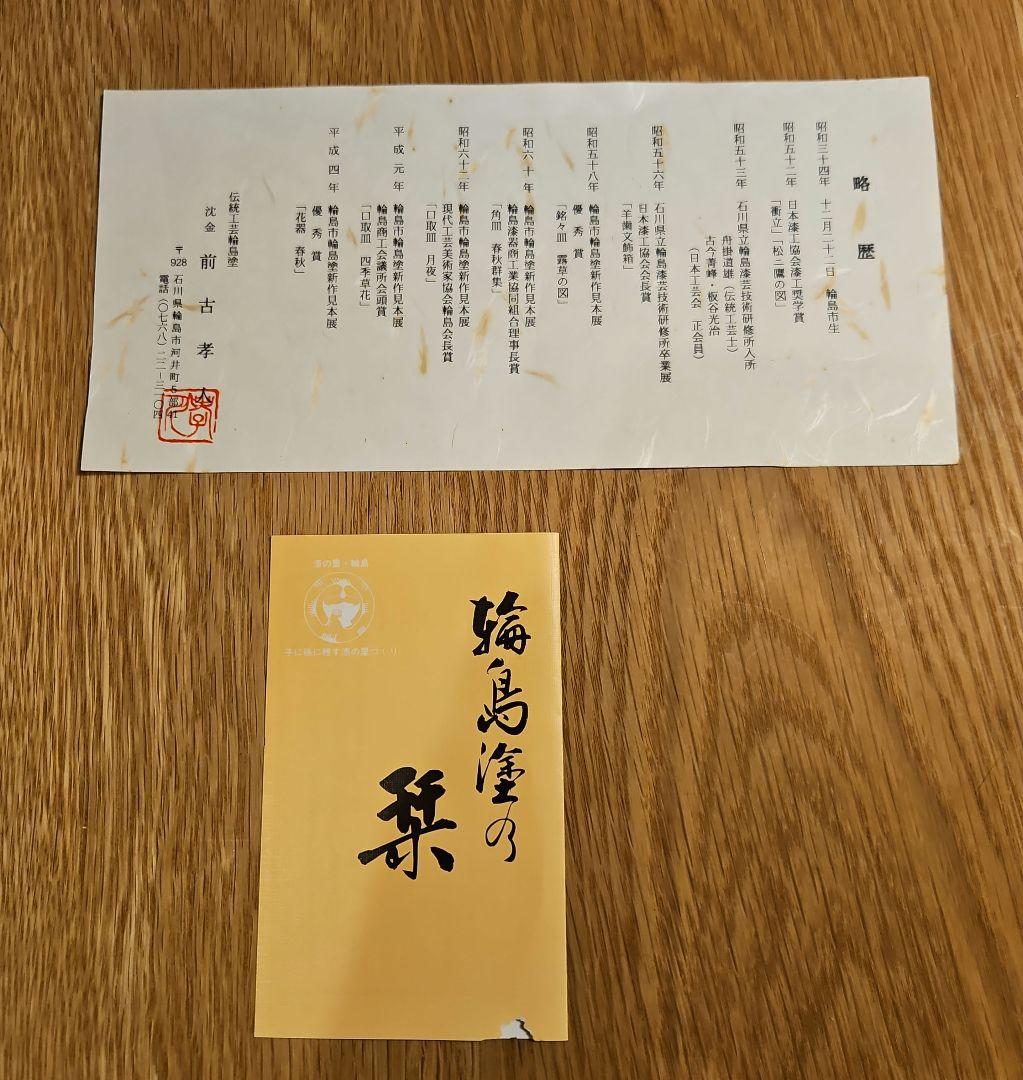 略歴
昭和三十四年 十二月二十二日 輪島市生
昭和五十二年 日本漆工協会漆工奨学賞
「衝立」「松ニ鷹の図」
昭和五十三年 石川県立輪島漆芸技術研修所入所
舟掛道雄（伝統工芸士）
古今菁峰・板谷光治
（日本工芸会 正会員）
昭和五十六年 石川県立輪島漆芸技術研修所卒業展
日本漆工協会会長賞
「羊歯文飾箱」
昭和五十八年 輪島市輪島塗新作見本展
優秀賞
「銘々皿 露草の図」
昭和六十年 輪島市輪島塗新作見本展
輪島漆器商工業協同組合理事長賞
「角皿 春秋群集」
昭和六十二年 輪島市輪島塗新作見本展
現代工芸美術家協会輪島会長賞
「口取皿 月夜」
平成元年 輪島市輪島塗新作見本展
輪島商工会議所会頭賞
「口取皿 四季草花」
平成四年 輪島市輪島塗新作見本展
優秀賞
「花器 春秋」
伝統工芸輪島塗
沈金 前古孝人
〒928 石川県輪島市河井町5部41
電話（〇七六八）二二ー三一〇四
漆の里・輪島
子に孫に残す漆の里づくり
輪島塗の
栞